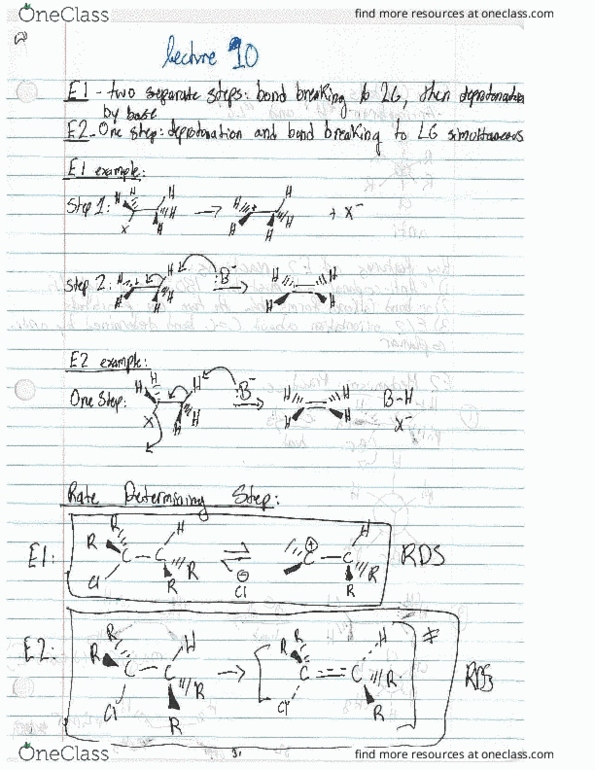 OneClass
find more resources at oneclass.com
lecture 10
E1 - two separate steps: bond breaking to LG, then deprotonation
by base
E2 - One step: deprotonation and bond breaking to LG simultaneous
E1 example:
Step 1: H H H H H X → H H H H H + X⁻
Step 2: H H H H H :B⁻ → H H H H
E2 example:
One Step: H H H H H X :B⁻ → H H H H B-H
X⁻
Rate Determining Step:
E1: R R C - C H R R Cl ⇌ Cl⊖ C⊕ - C H R R RDS
E2: R R C - C H R R Cl → [ R R C = C H R R Cl ] ‡ RDS
OneClass
find more resources at oneclass.com